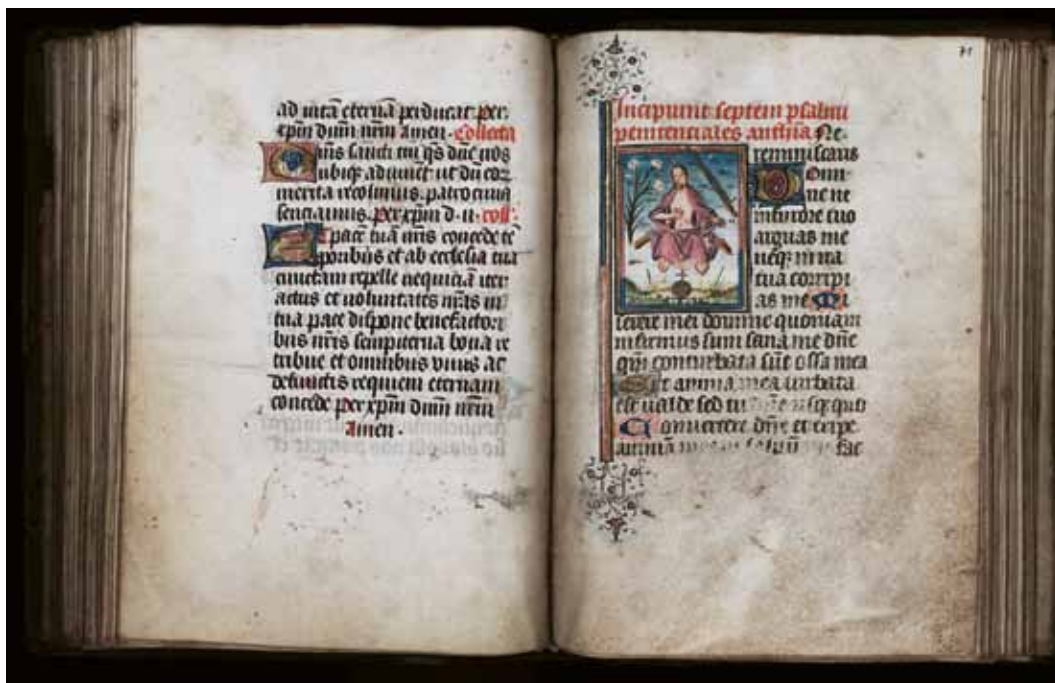 ad uitā eternā perducat per
xpm̄ dnm̄ nrm̄ amen · Collecta
nis sancti tui qs dne nos
ubiq adiuuet ut dū eoꝝ
merita recolimus · patrocinia
senciamus · per xpm̄ d · n · coll'
t pacē tuā nris concede tē
poribus et ab ecclesia tua
cunctam repelle nequiciā iter
actus et uoluntates nrās in
tua pace dispone benefactori
bus nris sempiterna bona re
tribue et omnibus uiuis ac
defunctis requiem eternam
concede per xpm̄ dnm̄ nrm̄
amen ·
71
Incipiunt septem psalmi
penitenciales antha Ne
reminiscaris
Domi
ne ne
in furore tuo
arguas me
neqꝫ in ira
tua corripi
as me Mi
serere mei domine quoniam
infirmus sum sana me dne
qm̄ conturbata sūt ossa mea
Et anima mea turbata
est ualde sed tu dne usqꝫ quo
Conuertere dne et eripe
animā meam saluū me fac